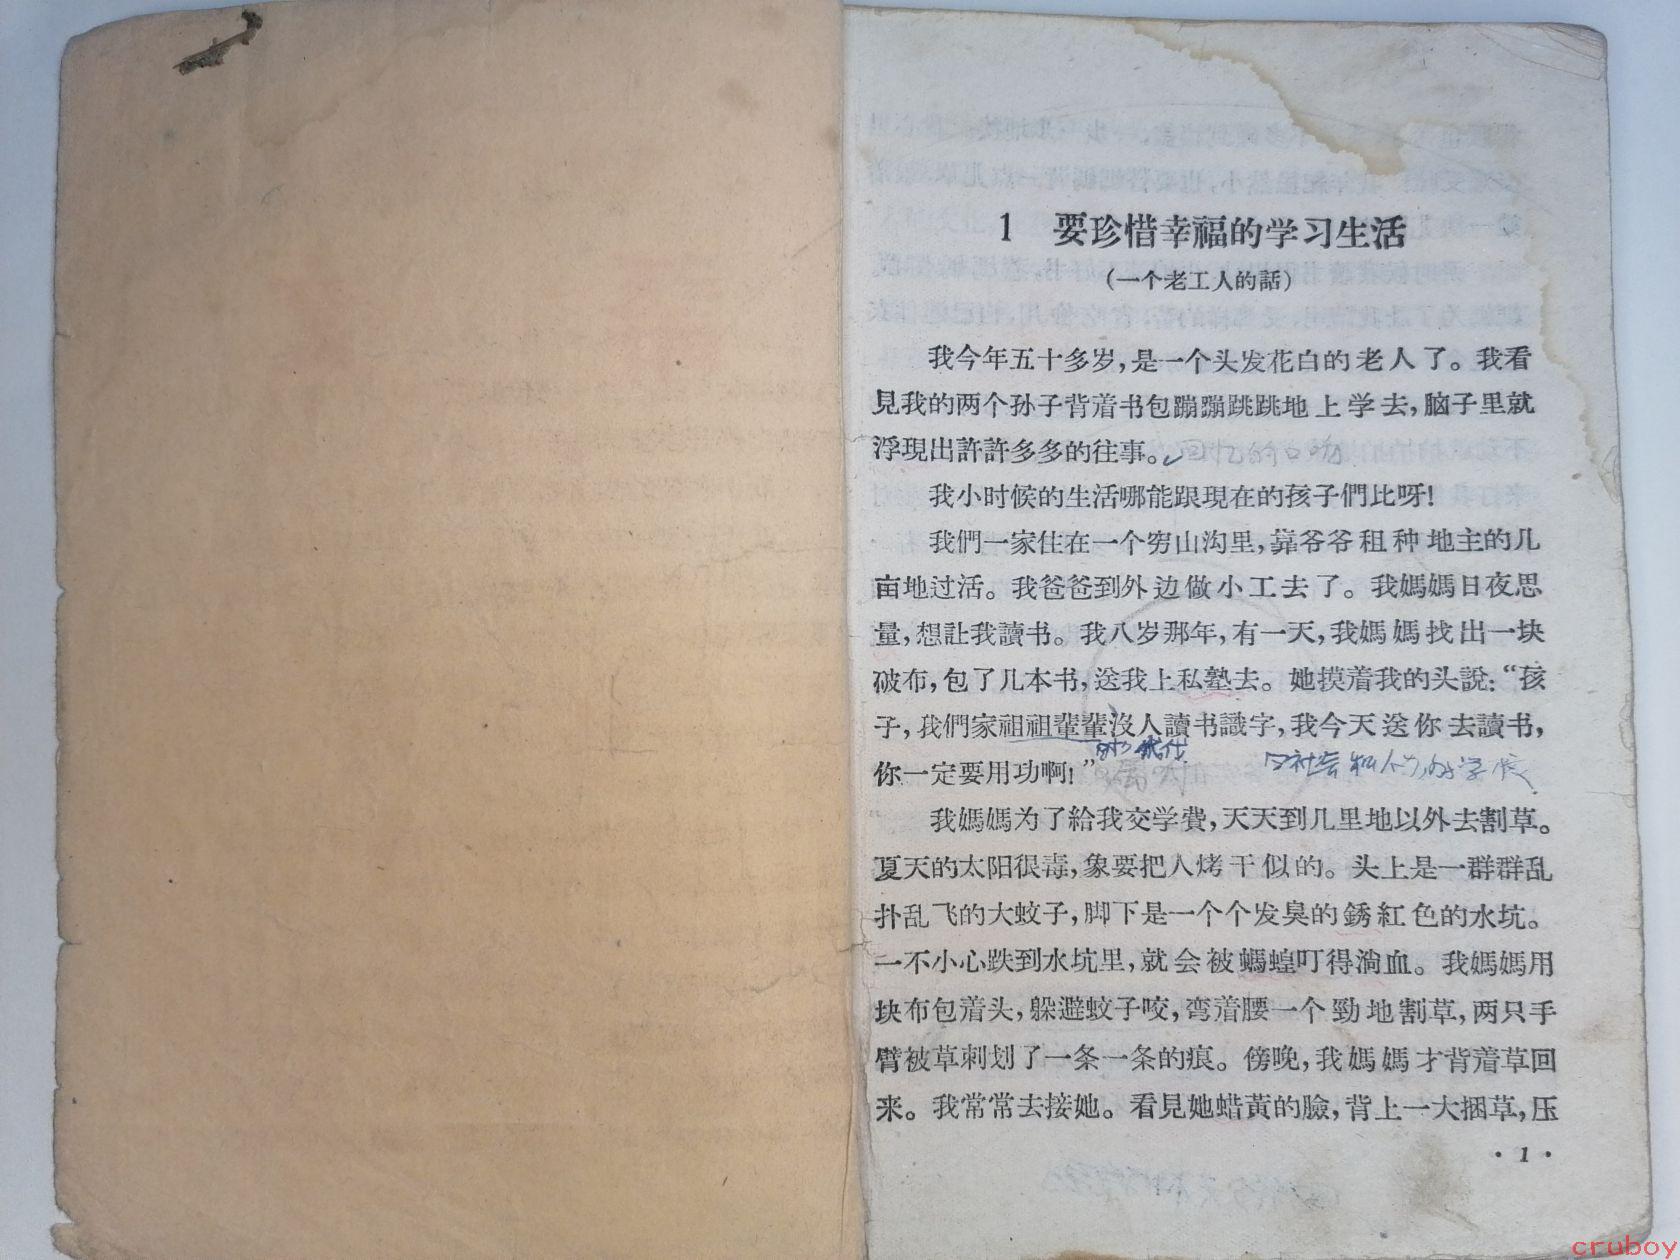 1 要珍惜幸福的学习生活
(一个老工人的話)
我今年五十多岁,是一个头发花白的老人了。我看
見我的两个孙子背着书包蹦蹦跳跳地上学去,脑子里就
浮現出許許多多的往事。
我小时候的生活哪能跟現在的孩子們比呀!
我們一家住在一个穷山沟里,靠爷爷租种地主的几
亩地过活。我爸爸到外边做小工去了。我媽媽日夜思
量,想让我讀书。我八岁那年,有一天,我媽媽找出一块
破布,包了几本书,送我上私塾去。她摸着我的头說:“孩
子,我們家祖祖輩輩沒人讀书識字,我今天送你去讀书,
你一定要用功啊!”
我媽媽为了給我交学費,天天到几里地以外去割草。
夏天的太阳很毒,象要把人烤干似的。头上是一群群乱
扑乱飞的大蚊子,脚下是一个个发臭的銹紅色的水坑。
一不小心跌到水坑里,就会被螞蝗叮得淌血。我媽媽用
块布包着头,躲避蚊子咬,弯着腰一个勁地割草,两只手
臂被草刺划了一条一条的痕。傍晚,我媽媽才背着草回
来。我常常去接她。看見她蜡黃的臉,背上一大捆草,压
·1·
cruboy